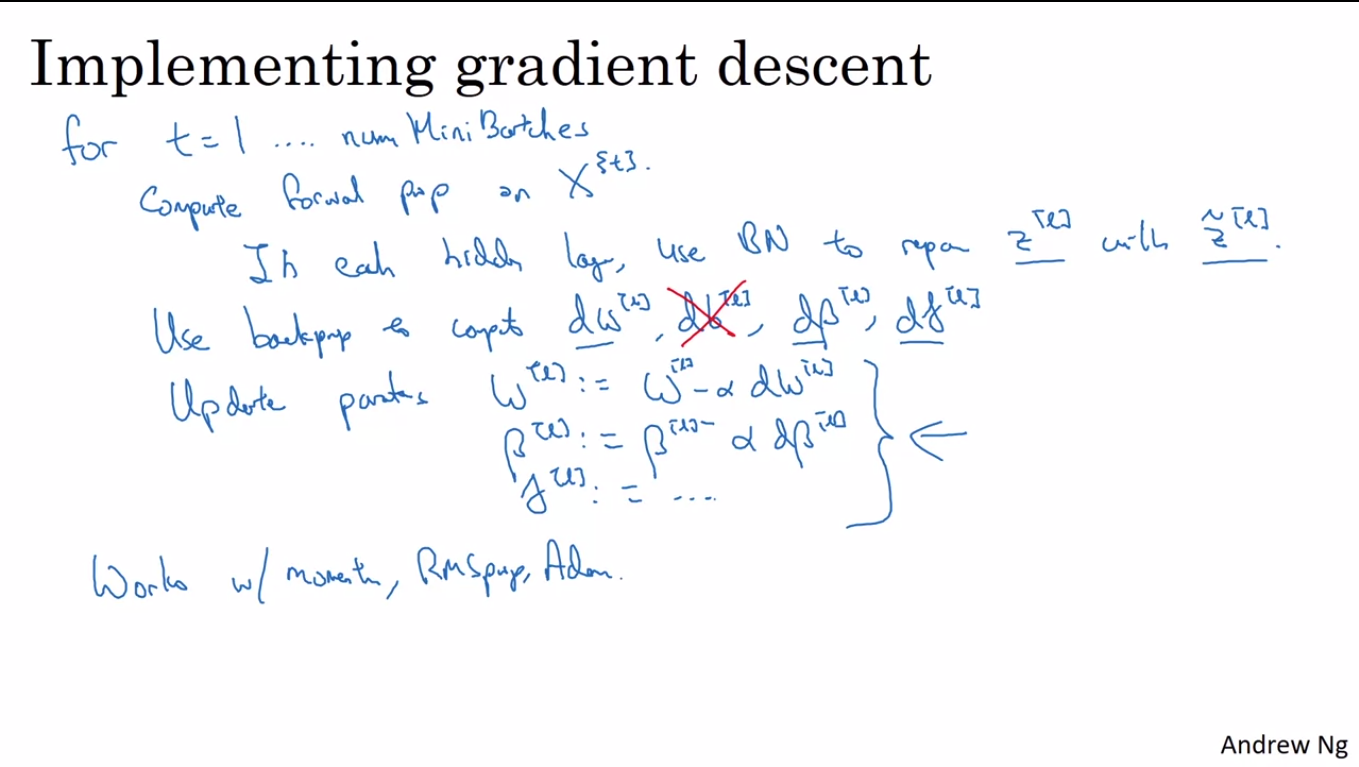 Implementing gradient descent
for t = 1 .... num Mini Batches
Compute forwal prop on X^{t}.
In each hidden layer, use BN to repar z^[l] with z̃^[l].
Use backprop to compt dw^[l], db^[l], dβ^[l], dγ^[l]
Update partes W^[l] := W^[l] - α dW^[l]
β^[l] := β^[l] - α dβ^[l]
γ^[l] := ....
Works w/ momentum, RMSprop, Adam.
Andrew Ng